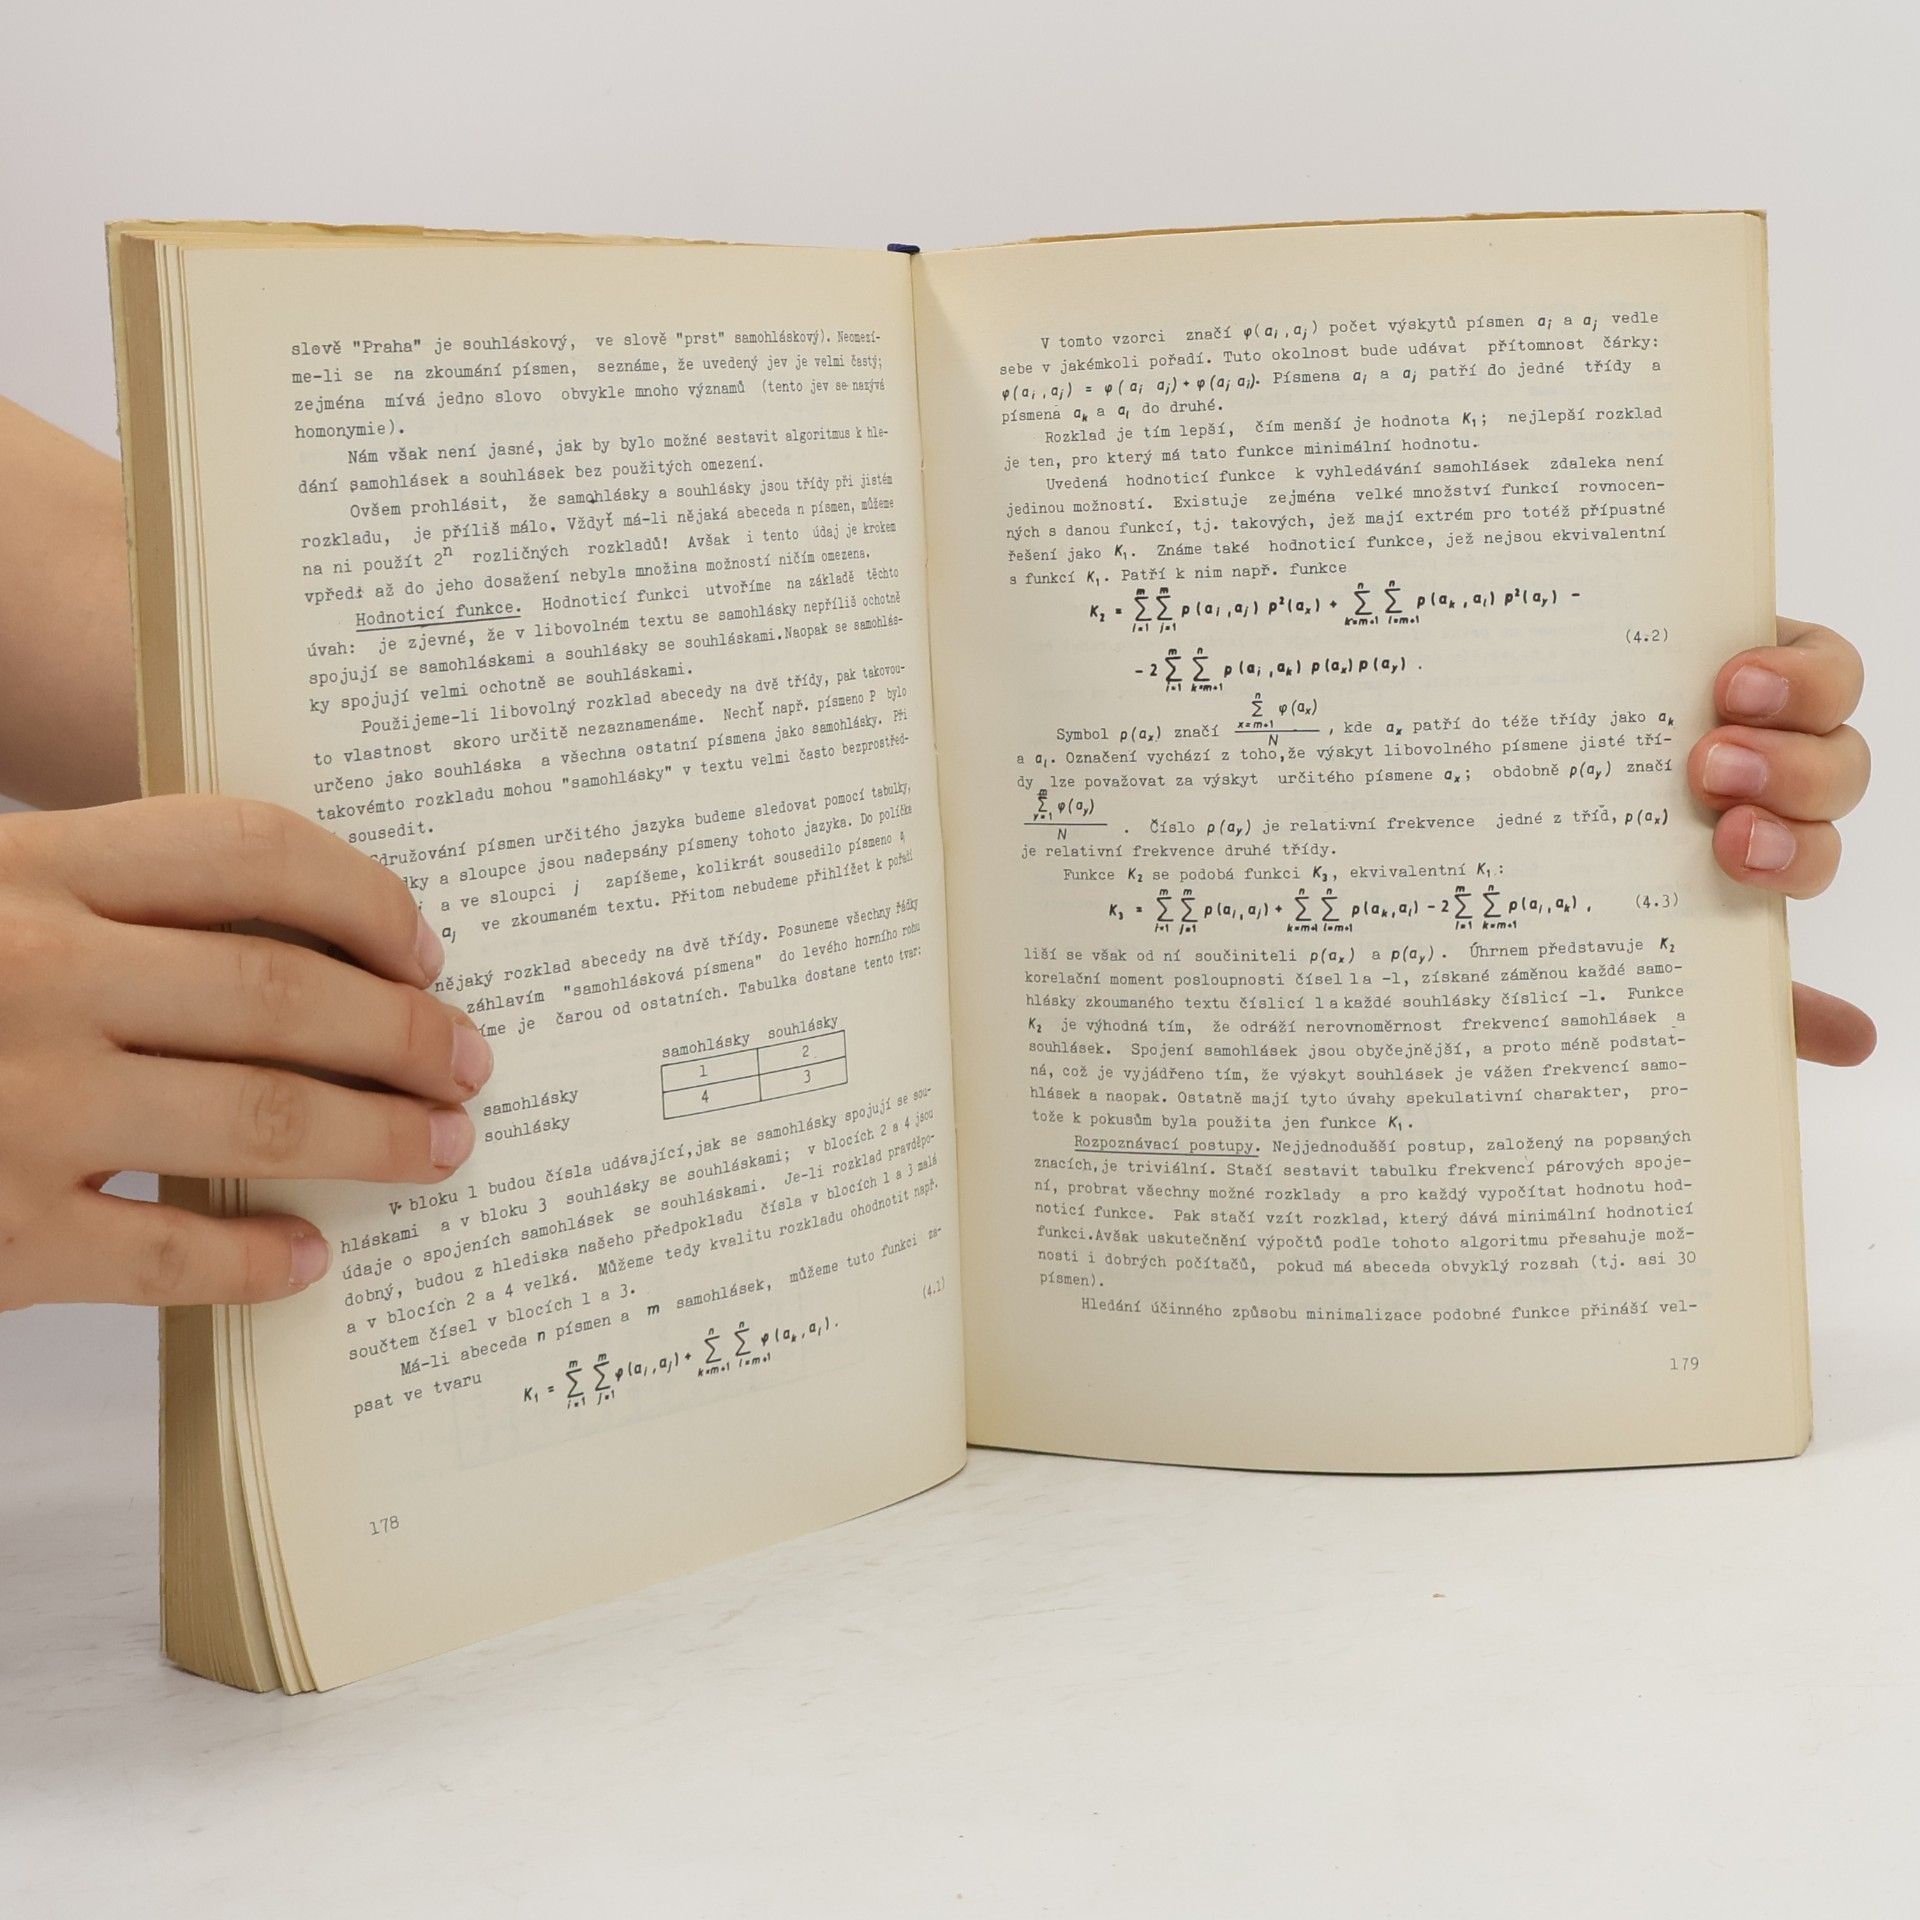 slově "Praha" je souhláskový, ve slově "prst" samohláskový). Neomezí-
me-li se na zkoumání písmen, seznáme, že uvedený jev je velmi častý;
zejména mívá jedno slovo obvykle mnoho významů (tento jev se nazývá
homonymie).
Nám však není jasné, jak by bylo možné sestavit algoritmus k hle-
dání samohlásek a souhlásek bez použitých omezení.
Ovšem prohlásit, že samohlásky a souhlásky jsou třídy při jistém
rozkladu, je příliš málo. Vždyť má-li nějaká abeceda n písmen, můžeme
na ni použít 2^n rozličných rozkladů! Avšak i tento údaj je krokem
vpřed: až do jeho dosažení nebyla množina možností ničím omezena.
Hodnoticí funkce. Hodnoticí funkci utvoříme na základě těchto
úvah: je zjevné, že v libovolném textu se samohlásky nepříliš ochotně
spojují se samohláskami a souhlásky se souhláskami. Naopak se samohlás-
ky spojují velmi ochotně se souhláskami.
Použijeme-li libovolný rozklad abecedy na dvě třídy, pak takovou-
to vlastnost skoro určitě nezaznamenáme. Nechť např. písmeno P bylo
určeno jako souhláska a všechna ostatní písmena jako samohlásky. Při
takovémto rozkladu mohou "samohlásky" v textu velmi často bezprostřed-
sousedit.
družování písmen určitého jazyka budeme sledovat pomocí tabulky,
dky a sloupce jsou nadepsány písmeny tohoto jazyka. Do políčka
a ve sloupci j zapíšeme, kolikrát sousedilo písmeno a_i
a_j ve zkoumaném textu. Přitom nebudeme přihlížet k pořadí
nějaký rozklad abecedy na dvě třídy. Posuneme všechny řádky
záhlavím "samohlásková písmena" do levého horního rohu
íme je čarou od ostatních. Tabulka dostane tento tvar:
samohlásky souhlásky
samohlásky 1 2
souhlásky 4 3
V bloku 1 budou čísla udávající, jak se samohlásky spojují se sou-
hláskami a v bloku 3 souhlásky se souhláskami; v blocích 2 a 4 jsou
údaje o spojeních samohlásek se souhláskami. Je-li rozklad pravděpo-
dobný, budou z hlediska našeho předpokladu čísla v blocích 1 a 3 malá
a v blocích 2 a 4 velká. Můžeme tedy kvalitu rozkladu ohodnotit např.
součtem čísel v blocích 1 a 3.
Má-li abeceda n písmen a m samohlásek, můžeme tuto funkci za-
psat ve tvaru
K_1 = \sum_{i=1}^{m} \sum_{j=1}^{m} φ(a_i, a_j) + \sum_{k=m+1}^{n} \sum_{l=m+1}^{n} φ(a_k, a_l). (4.1)
178
V tomto vzorci značí φ(a_i, a_j) počet výskytů písmen a_i a a_j vedle
sebe v jakémkoli pořadí. Tuto okolnost bude udávat přítomnost čárky:
φ(a_i, a_j) = φ(a_i a_j) + φ(a_j a_i). Písmena a_i a a_j patří do jedné třídy a
písmena a_k a a_l do druhé.
Rozklad je tím lepší, čím menší je hodnota K_1; nejlepší rozklad
je ten, pro který má tato funkce minimální hodnotu.
Uvedená hodnoticí funkce k vyhledávání samohlásek zdaleka není
jedinou možností. Existuje zejména velké množství funkcí rovnocen-
ných s danou funkcí, tj. takových, jež mají extrém pro totéž přípustné
řešení jako K_1. Známe také hodnoticí funkce, jež nejsou ekvivalentní
s funkcí K_1. Patří k nim např. funkce
K_2 = \sum_{i=1}^{m} \sum_{j=1}^{m} p(a_i, a_j) p^2(a_x) + \sum_{k=m+1}^{n} \sum_{l=m+1}^{n} p(a_k, a_l) p^2(a_y) -
(4.2)
- 2 \sum_{i=1}^{m} \sum_{k=m+1}^{n} p(a_i, a_k) p(a_x) p(a_y).
Symbol p(a_x) značí \frac{\sum_{x=m+1}^{n} φ(a_x)}{N}, kde a_x patří do téže třídy jako a_k
a a_l. Označení vychází z toho, že výskyt libovolného písmene jisté tří-
dy lze považovat za výskyt určitého písmene a_x; obdobně p(a_y) značí
\frac{\sum_{y=1}^{m} φ(a_y)}{N}. Číslo p(a_y) je relativní frekvence jedné z tříd, p(a_x)
je relativní frekvence druhé třídy.
Funkce K_2 se podobá funkci K_3, ekvivalentní K_1:
K_3 = \sum_{i=1}^{m} \sum_{j=1}^{m} p(a_i, a_j) + \sum_{k=m+1}^{n} \sum_{l=m+1}^{n} p(a_k, a_l) - 2 \sum_{i=1}^{m} \sum_{k=m+1}^{n} p(a_i, a_k), (4.3)
liší se však od ní součiniteli p(a_x) a p(a_y). Úhrnem představuje K_2
korelační moment posloupnosti čísel 1 a -1, získané záměnou každé samo-
hlásky zkoumaného textu číslicí 1 a každé souhlásky číslicí -1. Funkce
K_2 je výhodná tím, že odráží nerovnoměrnost frekvencí samohlásek a
souhlásek. Spojení samohlásek jsou obyčejnější, a proto méně podstat-
ná, což je vyjádřeno tím, že výskyt souhlásek je vážen frekvencí samo-
hlásek a naopak. Ostatně mají tyto úvahy spekulativní charakter, pro-
tože k pokusům byla použita jen funkce K_1.
Rozpoznávací postupy. Nejjednodušší postup, založený na popsaných
znacích, je triviální. Stačí sestavit tabulku frekvencí párových spoje-
ní, probrat všechny možné rozklady a pro každý vypočítat hodnotu hod-
noticí funkce. Pak stačí vzít rozklad, který dává minimální hodnoticí
funkci. Avšak uskutečnění výpočtů podle tohoto algoritmu přesahuje mož-
nosti i dobrých počítačů, pokud má abeceda obvyklý rozsah (tj. asi 30
písmen).
Hledání účinného způsobu minimalizace podobné funkce přináší vel-
179